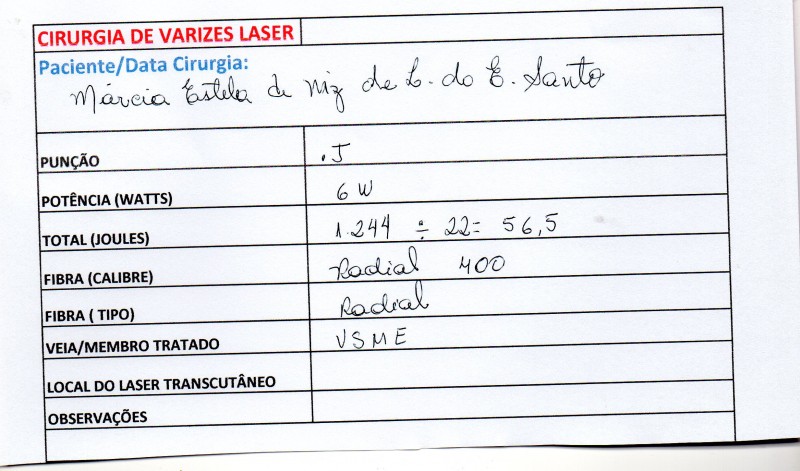 CIRURGIA DE VARIZES LASER
Paciente/Data Cirurgia:
Márcia Estela de de L. do E. Santo
PUNÇÃO .J
POTÊNCIA (WATTS) 6 W
TOTAL (JOULES) 1.244 ÷ 22= 56,5
FIBRA (CALIBRE) Radial 400
FIBRA ( TIPO) Radial
VEIA/MEMBRO TRATADO VSME
LOCAL DO LASER TRANSCUTÂNEO
OBSERVAÇÕES